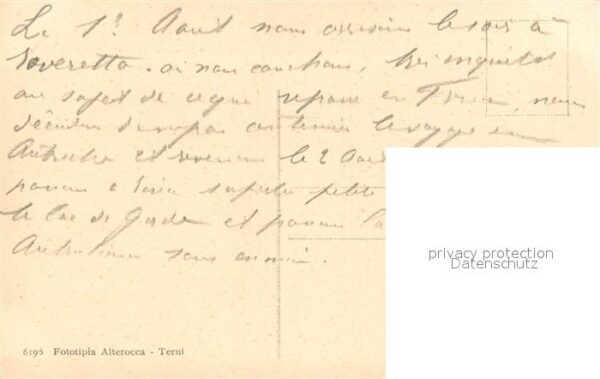 Le 1er Août nous arrivons le soir à
Roveretto. où nous couchons, très inquiets
au sujet de ce qui se passe en France, nous
décidons de ne pas continuer le voyage en
Autriche et revenons le 2 Août
passons à Riva superbe petite
le lac de Garde et passons la
Autrichienne sans ennui.
privacy protection
Datenschutz
6195 Fototipia Alterocca - Terni